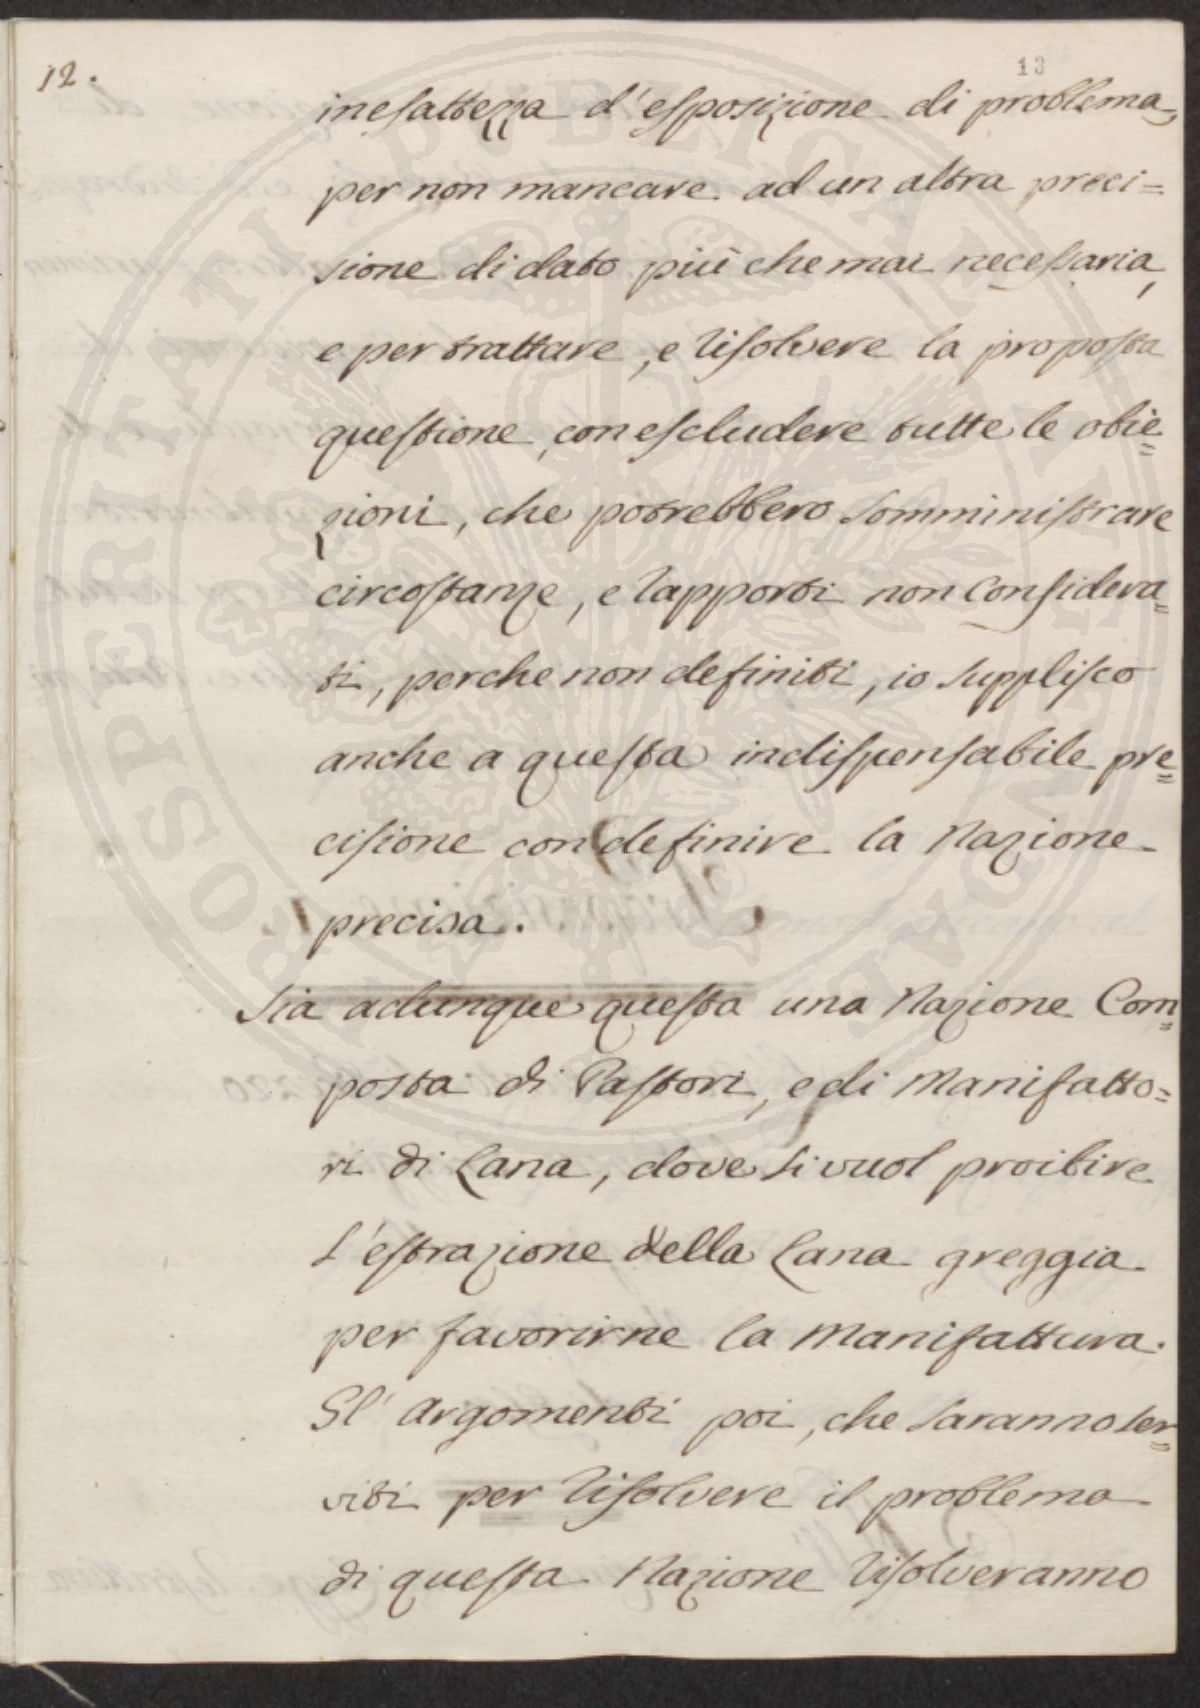 12.
13
inesattezza d'esposizione di problema,
per non mancare ad un altra preci=
sione di dato più che mai necessaria,
e per trattare, e risolvere la proposta
questione, con escludere tutte le obie=
zioni, che potrebbero somministrare
circostanze, e rapporti non considera=
ti, perche non definiti, io supplisco
anche a questa indispensabile pre=
cisione con definire la Nazione
precisa.
Sia adunque questa una Nazione Com=
posta di Pastori, e di Manifatto=
ri di Lana, dove si vuol proibire
l'estrazione della Lana greggia
per favorirne la Manifattura.
Gl' Argomenti poi, che saranno ser=
viti per risolvere il problema
di questa Nazione risolveranno
PROSPERITATI PUBLICAE AUGENDAE